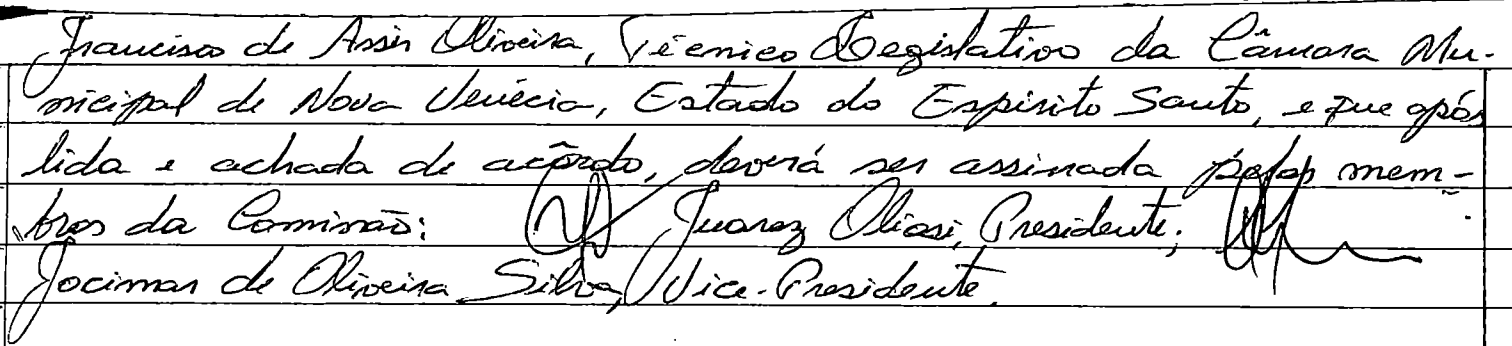 Francisco de Assis Oliveira, Técnico Legislativo da Câmara Mu-
nicipal de Nova Venécia, Estado do Espírito Santo, e que após
lida e achada de acôrdo, deverá ser assinada pelos mem-
bros da Comissão: Juarez Oliosi, Presidente;
Jocimar de Oliveira Silva, Vice-Presidente.